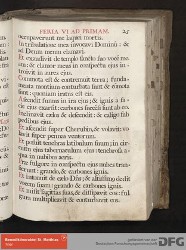 FERIA VI AD PRIMAM. 25
occupaverunt me laquei mortis.
In tribulatione mea invocavi Dominum: &
ad Deum meum clamavi.
Et exaudivit de templo sancto suo vocē me-
am: & clamor meus in conspectu ejus in-
troivit in aures ejus.
Commota est & contremuit terra: funda-
menta montium conturbata sunt & commota
sunt: quoniam iratus est eis.
Ascendit fumus in ira ejus: & ignis a fa-
cie ejus exarsit: carbones succensi sunt ab eo.
Inclinavit cœlos & descendit: & caligo sub
pedibus ejus.
Et ascendit super Cherubin, & volavit: vo-
lavit super pennas ventorum.
Et posuit tenebras latibulum suum in cir-
cuitu ejus tabernaculum ejus: tenebrosa a-
qua in nubibus aeris.
Præ fulgore in conspectu ejus nubes transi-
erunt: grando, & carbones ignis.
Et intonuit de cœlo Dñs: & altissimus dedit
vocem suam: grando & carbones ignis.
Et misit sagittas suas, & dissipavit eos: ful-
gura multiplicavit & conturbavit eos.
DFG